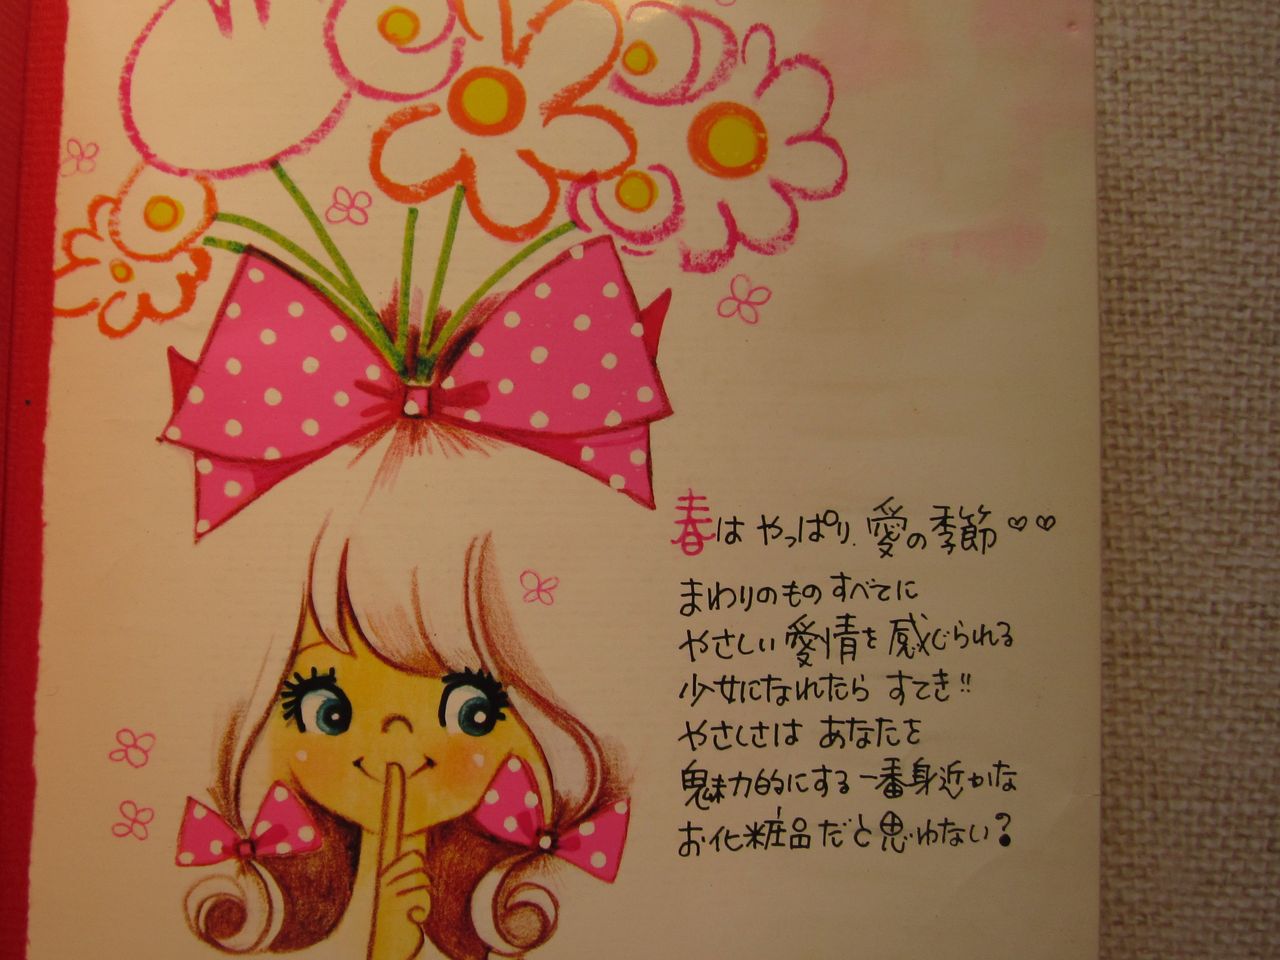 春は やっぱり、愛の季節♡♡
まわりのものすべてに
やさしい愛情を感じられる
少女になれたら すてき!!
やさしさは あなたを
魅力的にする 一番身近かな
お化粧品だと思わない？